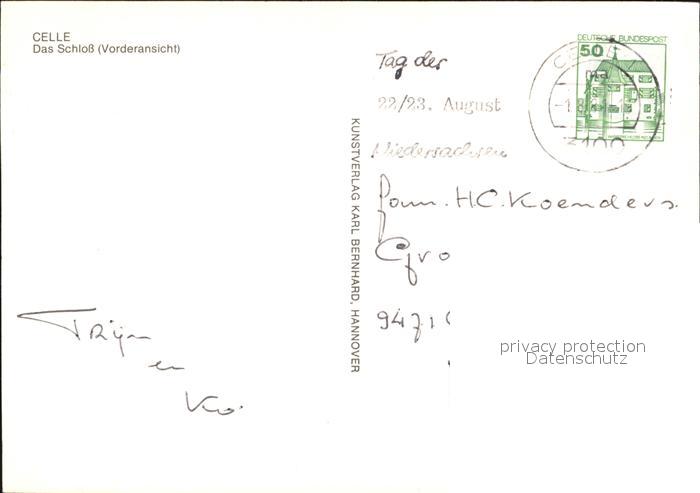 CELLE
Das Schloß (Vorderansicht)
Tag der
22/23. August
Niedersachsen
DEUTSCHE BUNDESPOST
50
CELLE
3100
KUNSTVERLAG KARL BERNHARD, HANNOVER
Fam. H.C. Koenders.
Gro
9471
privacy protection
Datenschutz
Trijn
en
Ko.